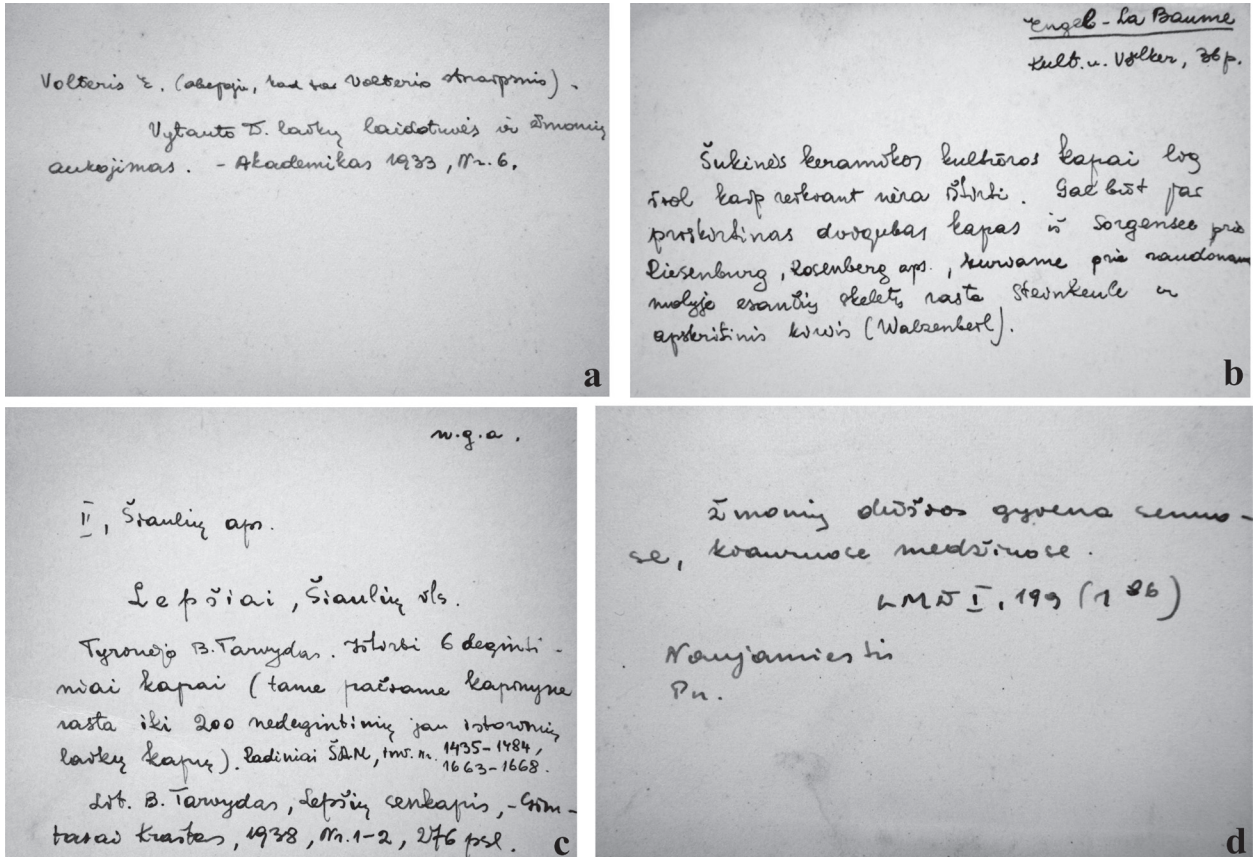 Volteris E. (abejoju, kad tas Volterio straipsnis).
Vytauto D. laikų laidotuvės ir žmonių
aukojimas. - Akademikas 1933, Nr. 6.
a
Engel - La Baume
Kult. u. Völker, 36 p.
Šukinės keramikos kultūros kapai lig
šiol kaip reikiant nėra ištirti. Gal būt jai
priskirtinas dvigubas kapas iš Sorgensee prie
Riesenburg, Rosenberg aps., kuriame prie raudoname
molyje esančių skeletų rasta Steinkeule ir
apskritinis kirvis (Walzenbeil).
b
n.g.a.
II, Šiaulių aps.
Lepšiai, Šiaulių vls.
Tyrinėjo B. Tarvydas. Ištirti 6 deginti-
niai kapai (tame pačiame kapinyne
rasta iki 200 nedegintinių jau istorinių
laikų kapų). Radiniai ŠAM, inv. nr. 1435-1484,
1663-1668.
Lit. B. Tarvydas, Lepšių senkapis, - Gim-
tasai Kraštas, 1938, Nr. 1-2, 276 psl.
c
Žmonių dūšios gyvena senuo-
se, kiauruose medžiuose.
LMD I, 199 (1 86)
Naujamiestis
Pn.
d